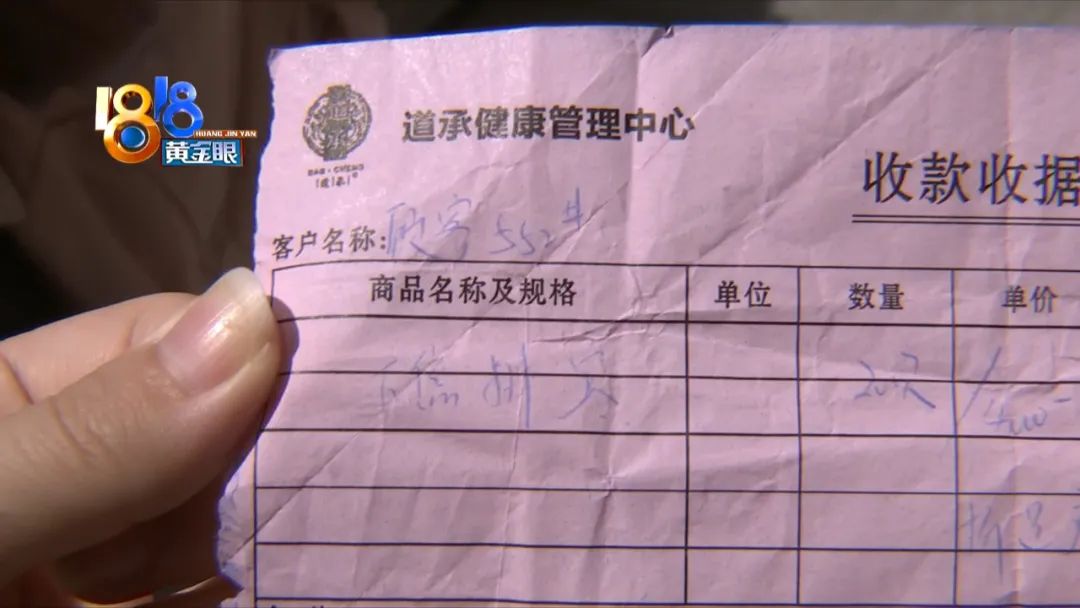 1818
HUANG JIN YAN
黄金眼
道承健康管理中心
DAO·CHENG
道承
收款收据
客户名称:顾客552#
商品名称及规格 单位 数量 单价
20次